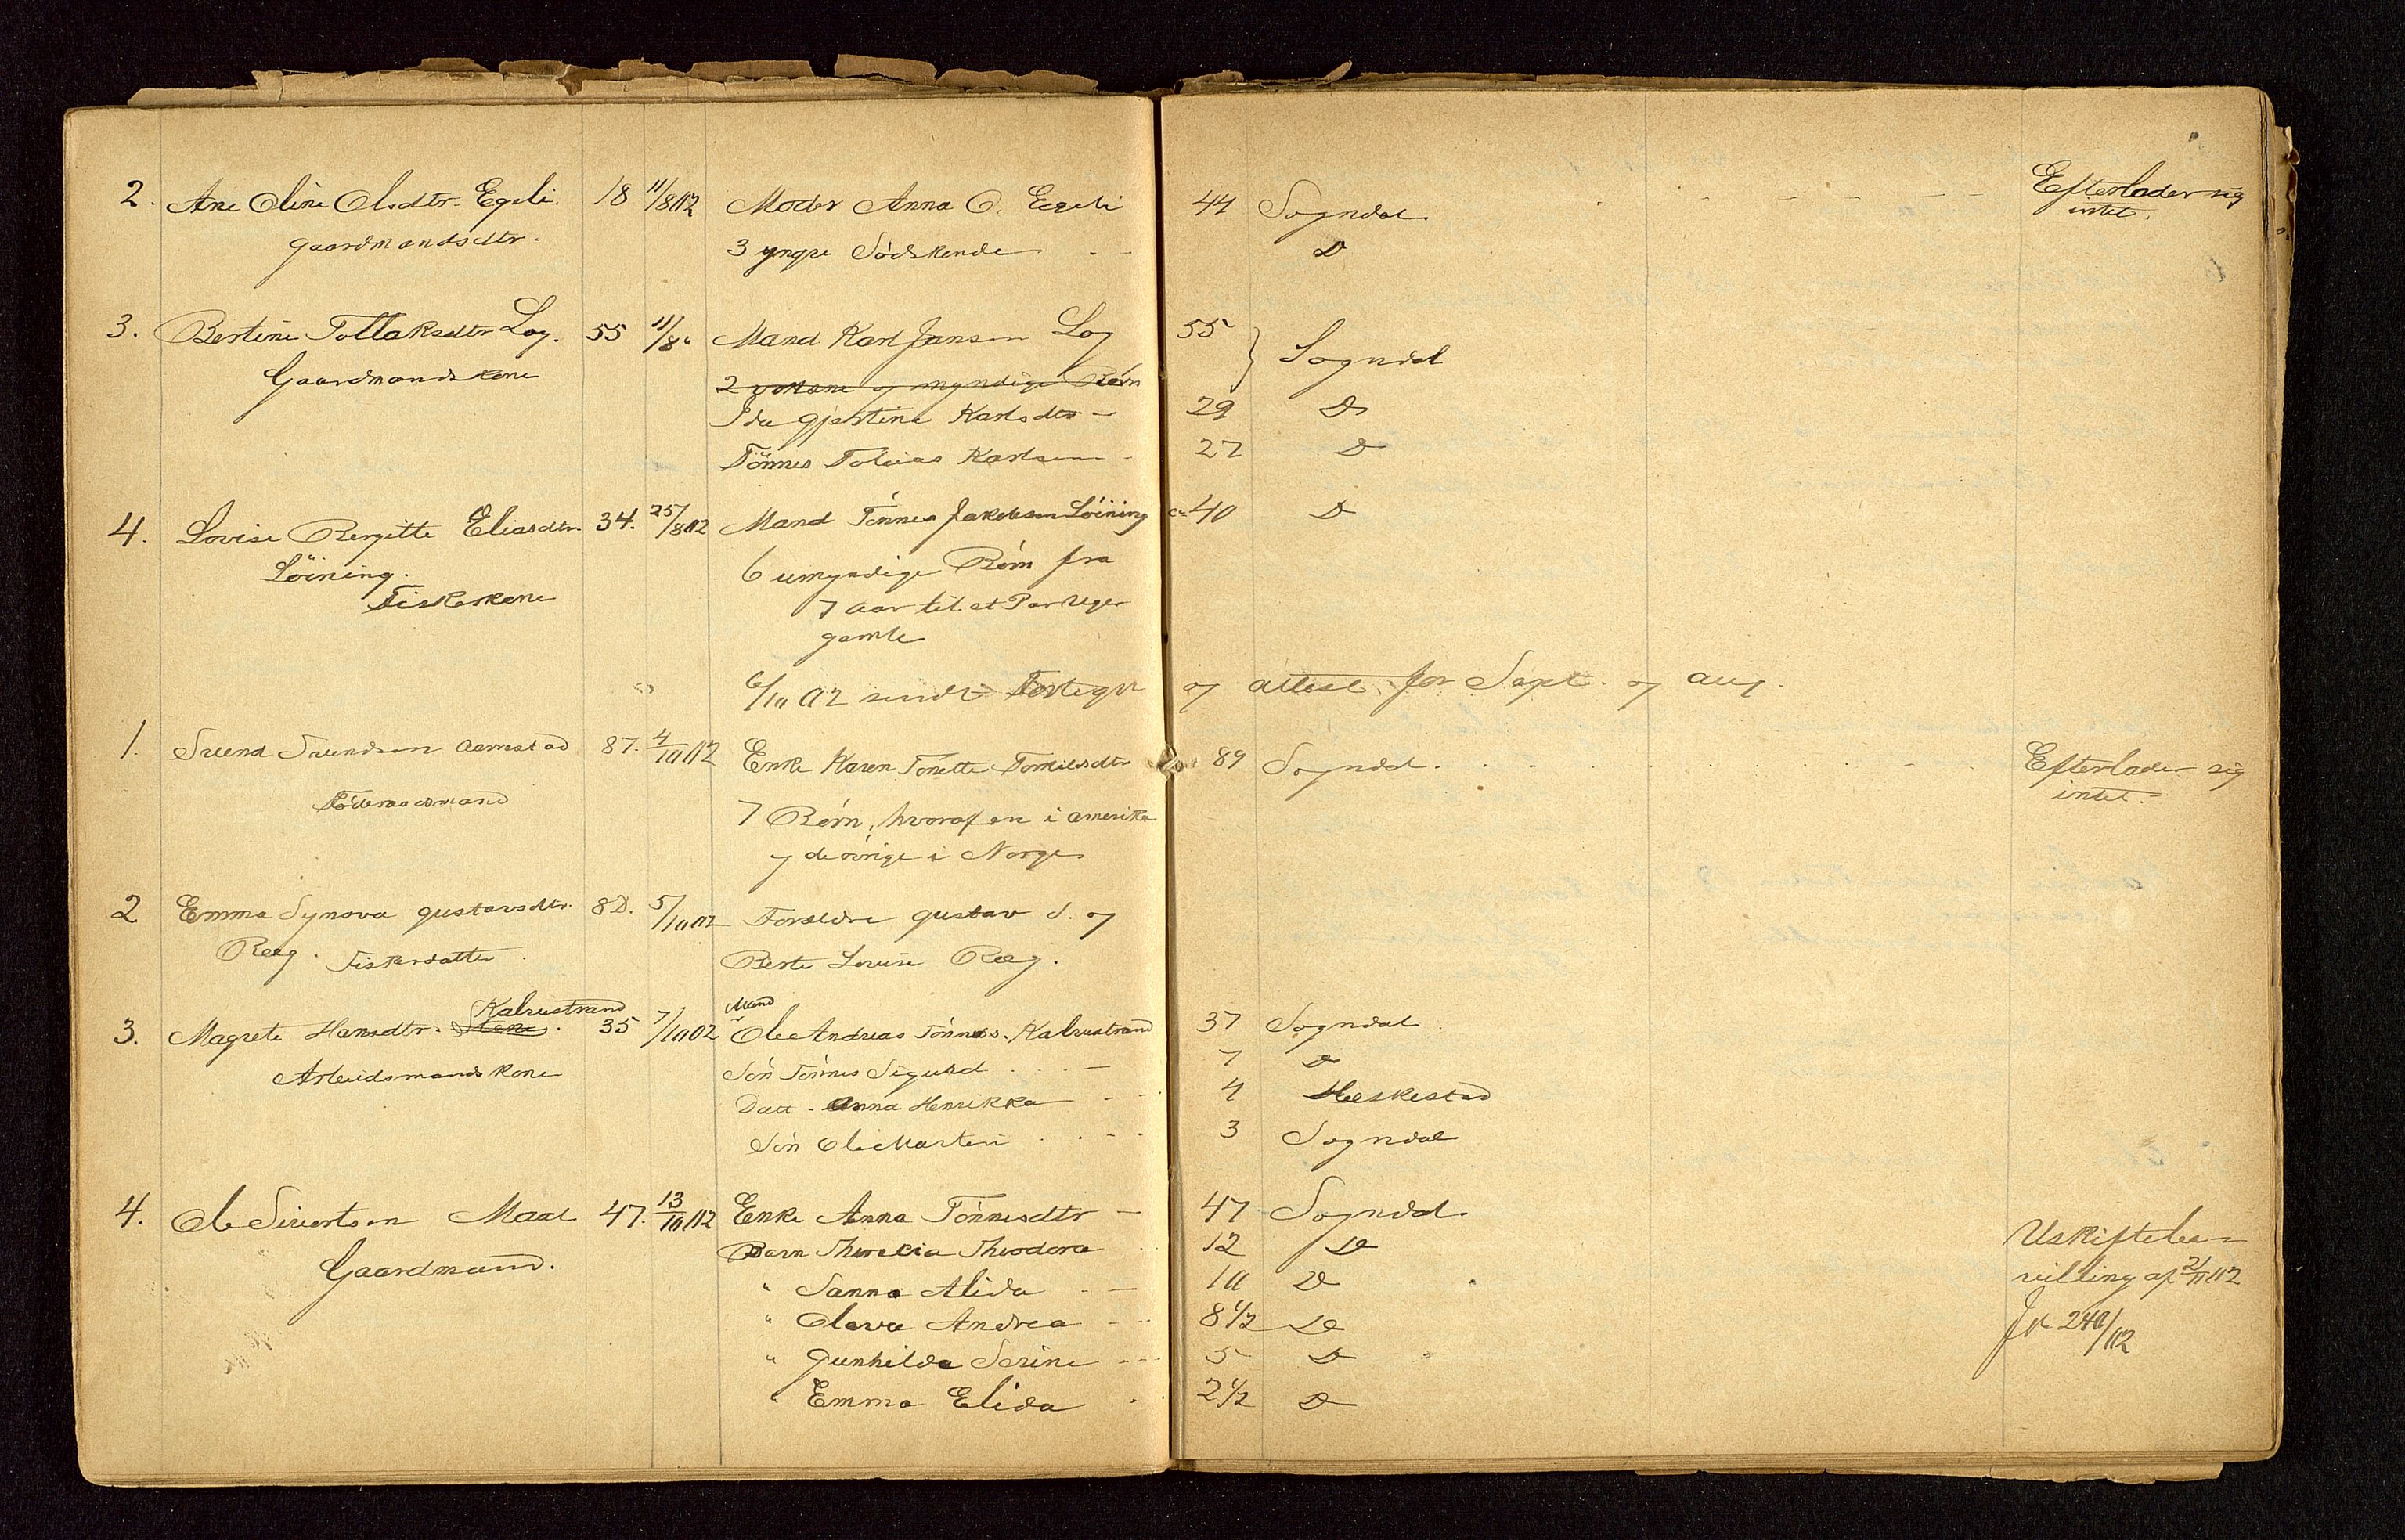 2. Ane Oline Olsdtr. Egeli. 18 11/8 02 Moder Anna O. Egeli 44 Sogndal Efterlader sig
intet.
gaardmandsdtr. 3 yngre Södskende D
3. Bertine Tollaksdtr Log. 55 11/8 " Mand Karl Jansen Log 55 } Sogndal
Gaardmandskone 2 voksne og myndige Børn
Ida Gjertine Karlsdtr 29 D
Tönnes Tobias Karlsen 27 D
4. Lovise Bergitte Eliasdtr. 34. 25/8 02 Mand Tönnes Jakobsen Löining ca 40 D
Löining. 6 umyndige Børn fra
Fiskerkone 7 aar til et Par Uger
gamle
6/10 02 sendt Fortegn og attest for Sept. og aug.
1. Svend Svendsen Aarrestad 87. 4/10 02 Enke Karen Tonette Tomilsdtr 89 Sogndal Efterlader sig
intet.
Föderaadsmand 7 Børn, hvoraf en i Amerika
og de övrige i Norge
2 Emma Synova Gustavsdtr. 8 D. 5/10 02 Foreldre Gustav S. og
Reeg. Fiskerdatter. Berte Lovise Reeg.
3. Magrete Hansdtr. Kalvestrand 35 7/10 02 Mand Ole Andreas Tönnes. Kalvestrand 37 Sogndal
Arbeidsmandskone Sön Tönnes Sigurd 7 D
Datt. Anna Henrikka 4 Heskestad
Sön Ole Martin 3 Sogndal
4. Ole Sivertsen Maal 47. 13/10 02 Enke Anna Tönnesdtr 47 Sogndal
Gaardmand. Barn Theodora 12 D Uskiftebe=
" Sanna Alida 10 D villing af 21/11 02
" Olava Andrea 8 1/2 D Jr 240/02
" Gunhilda Serine 5 D
" Emma Elida 2 1/2 D